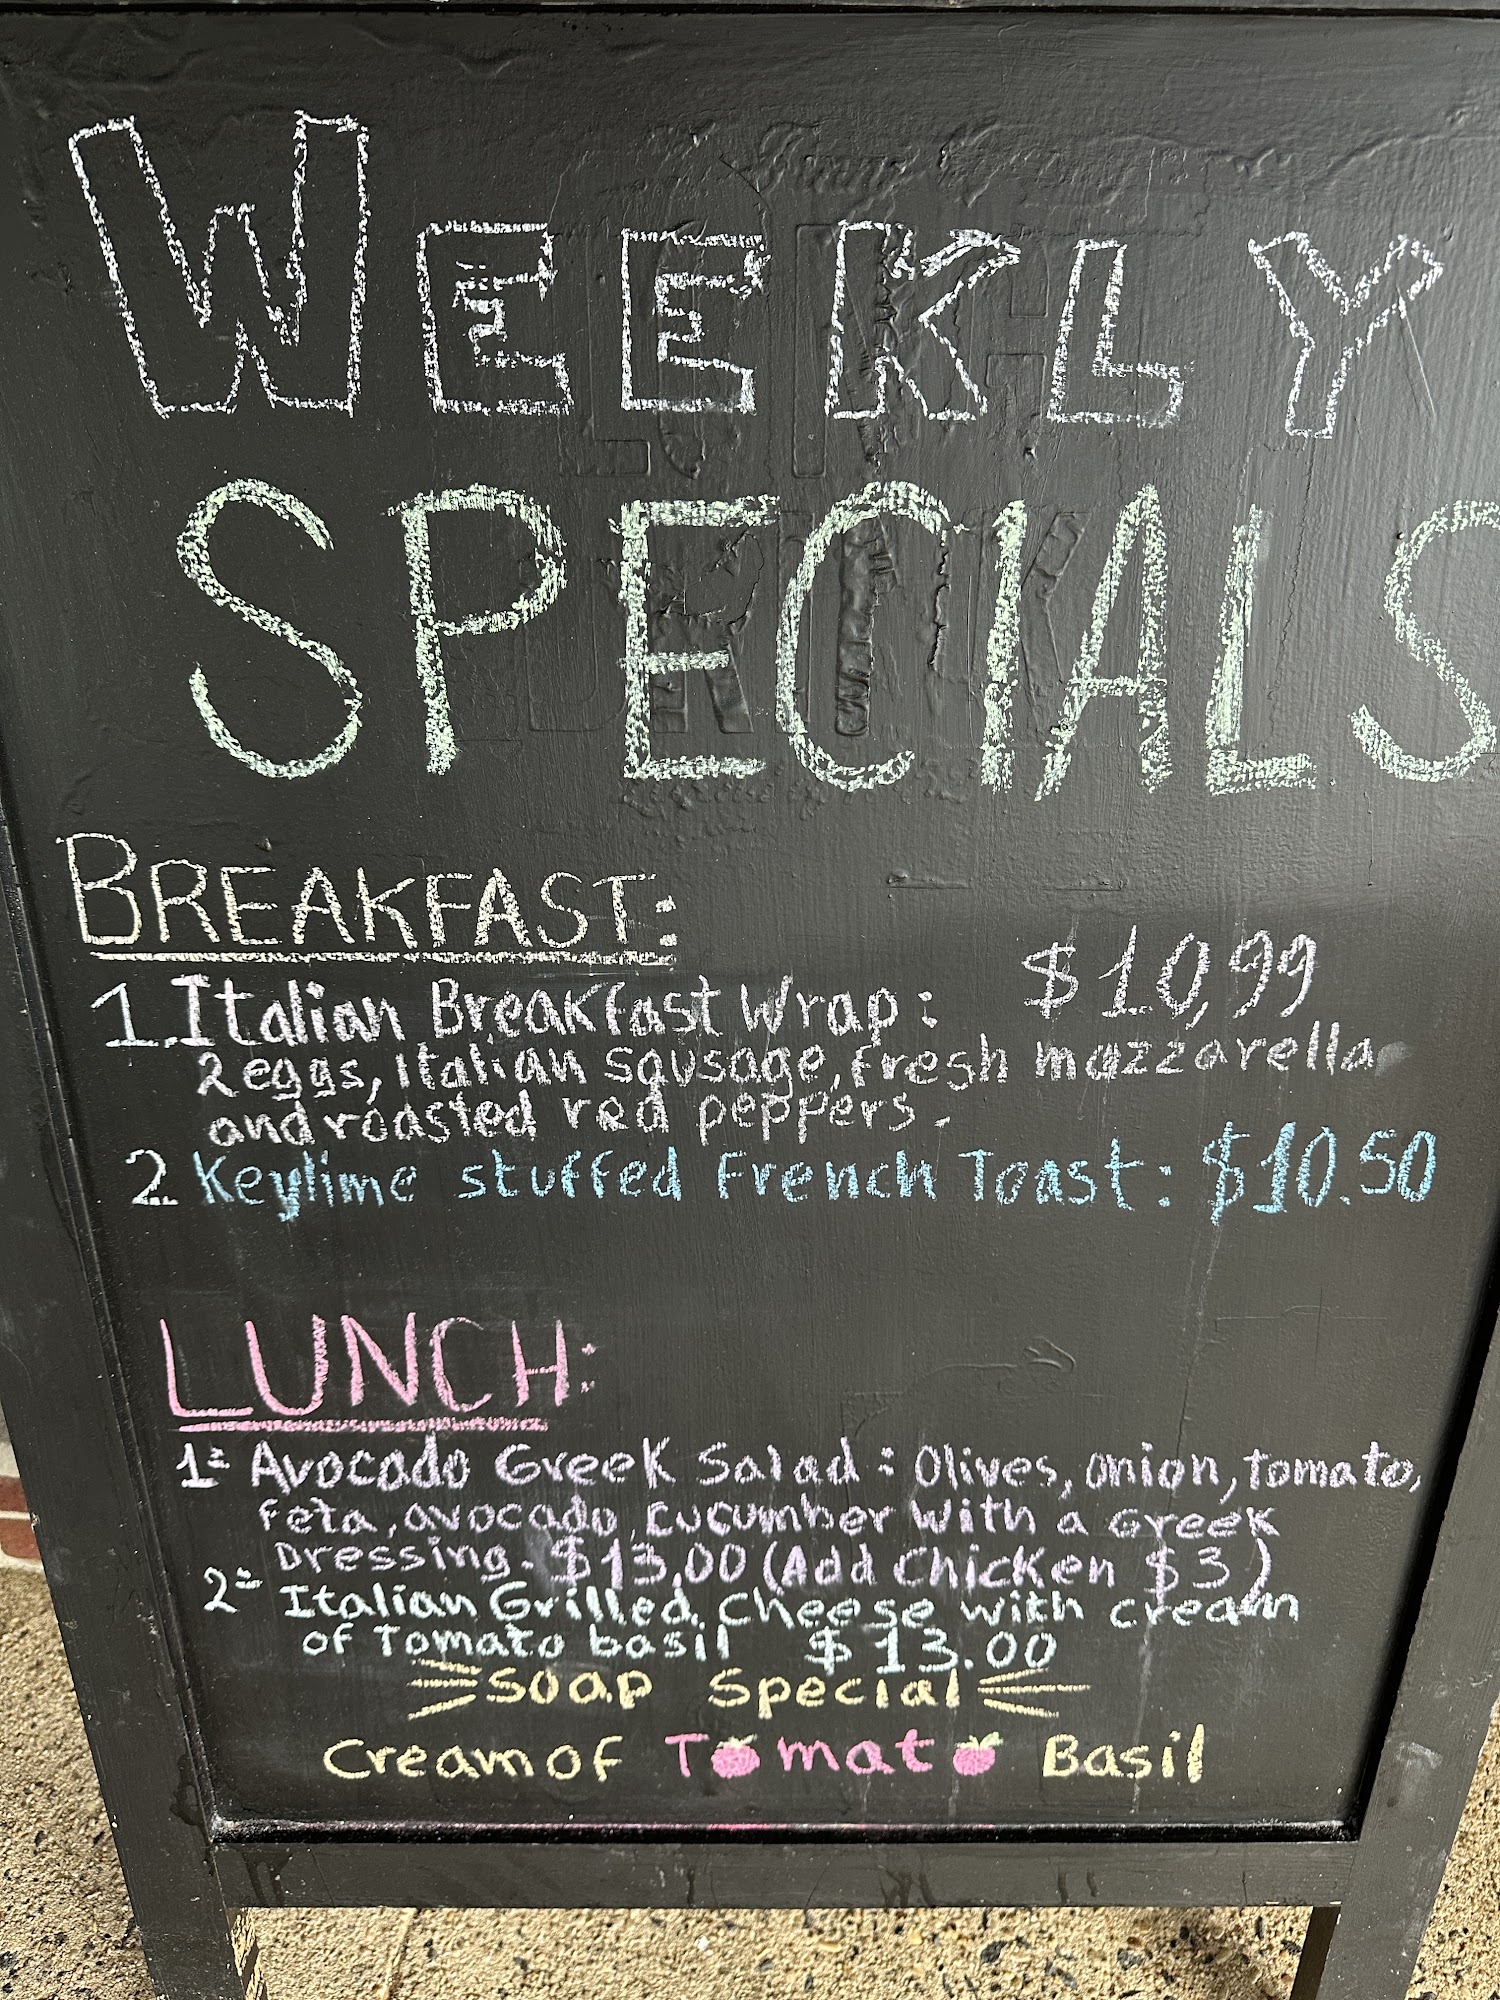 WEEKLY
SPECIALS
BREAKFAST:
1. Italian Breakfast Wrap: $10,99
2 eggs, Italian sausage, Fresh mazzarella
and roasted red peppers.
2 Keylime stuffed French Toast: $10.50
LUNCH:
1= Avocado Greek Salad: Olives, onion, tomato,
Feta, avocado, cucumber with a Greek
Dressing. $13,00 (Add Chicken $3)
2= Italian Grilled Cheese with cream
of Tomato basil $13.00
Soap Special
Cream of Tomato Basil